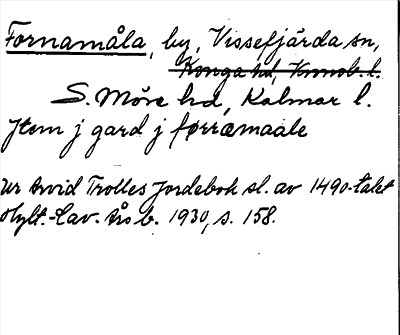 Fornamåla, by, Vissefjärda sn,
Konga hd, Kronob. l.
S. Möre hd, Kalmar l.
Jtem j gard j førræmaale
Ur Arvid Trolles Jordebok sl. av 1490-talet
Hylt.-Cav. Års b. 1930, s. 158.